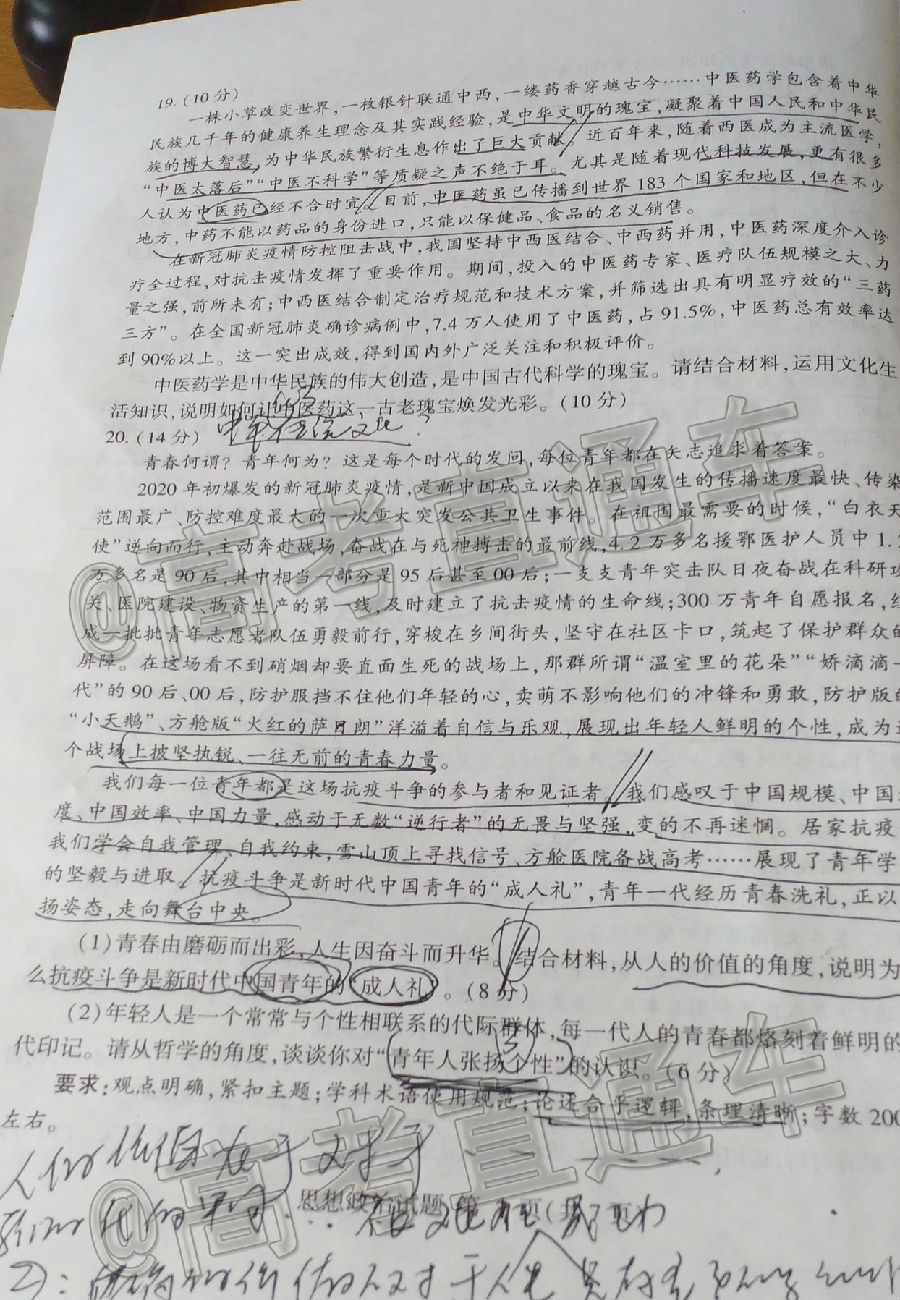 19.(10分)
一株小草改变世界,一枚银针联通中西,一缕药香穿越古今……中医药学包含着中华
民族几千年的健康养生理念及其实践经验,是中华文明的瑰宝,凝聚着中国人民和中华民
族的博大智慧,为中华民族繁衍生息作出了巨大贡献。近百年来,随着西医成为主流医学,
“中医太落后”“中医不科学”等质疑之声不绝于耳。尤其是随着现代科技发展,更有很多
人认为中医药已经不合时宜。目前,中医药虽已传播到世界183个国家和地区,但在不少
地方,中药不能以药品的身份进口,只能以保健品、食品的名义销售。
在新冠肺炎疫情防控阻击战中,我国坚持中西医结合、中西药并用,中医药深度介入诊
疗全过程,对抗击疫情发挥了重要作用。期间,投入的中医药专家、医疗队伍规模之大、力
量之强,前所未有;中西医结合制定治疗规范和技术方案,并筛选出具有明显疗效的“三药
三方”。在全国新冠肺炎确诊病例中,7.4万人使用了中医药,占91.5%,中医药总有效率达
到90%以上。这一突出成效,得到国内外广泛关注和积极评价。
中医药学是中华民族的伟大创造,是中国古代科学的瑰宝。请结合材料,运用文化生
活知识,说明如何让中医药这一古老瑰宝焕发光彩。(10分)
20.(14分) 中华传统文化?
青春何谓?青年何为?这是每个时代的发问,每位青年都在矢志追求着答案。
2020年初爆发的新冠肺炎疫情,是新中国成立以来在我国发生的传播速度最快、传染
范围最广、防控难度最大的一次重大突发公共卫生事件。在祖国最需要的时候,“白衣天
使”逆向而行,主动奔赴战场,奋战在与死神搏击的最前线,4.2万多名援鄂医护人员中1.
万多名是90后,其中相当一部分是95后甚至00后;一支支青年突击队日夜奋战在科研攻
关、医院建设、物资生产的第一线,及时建立了抗击疫情的生命线;300万青年自愿报名,组
成一批批青年志愿者队伍勇毅前行,穿梭在乡间街头,坚守在社区卡口,筑起了保护群众的
屏障。在这场看不到硝烟却要直面生死的战场上,那群所谓“温室里的花朵”“娇滴滴一
代”的90后、00后,防护服挡不住他们年轻的心,卖萌不影响他们的冲锋和勇敢,防护版的
“小天鹅”、方舱版“火红的萨日朗”洋溢着自信与乐观,展现出年轻人鲜明的个性,成为这
个战场上披坚执锐、一往无前的青春力量。
我们每一位青年都是这场抗疫斗争的参与者和见证者。我们感叹于中国规模、中国
度、中国效率、中国力量,感动于无数“逆行者”的无畏与坚强,变的不再迷惘。居家抗疫
我们学会自我管理、自我约束,雪山顶上寻找信号、方舱医院备战高考……展现了青年学
的坚毅与进取。抗疫斗争是新时代中国青年的“成人礼”,青年一代经历青春洗礼,正以
扬姿态,走向舞台中央。
(1)青春由磨砺而出彩,人生因奋斗而升华。结合材料,从人的价值的角度,说明为
么抗疫斗争是新时代中国青年的“成人礼”。(8分)
(2)年轻人是一个常常与个性相联系的代际群体,每一代人的青春都烙刻着鲜明的
代印记。请从哲学的角度,谈谈你对“青年人张扬个性”的认识。(6分)
要求:观点明确,紧扣主题;学科术语使用规范;论述合乎逻辑,条理清晰;字数200
左右。
人的价值在于
思想政治试题 第 页(共 页)
@高考直通车
@高考直通车